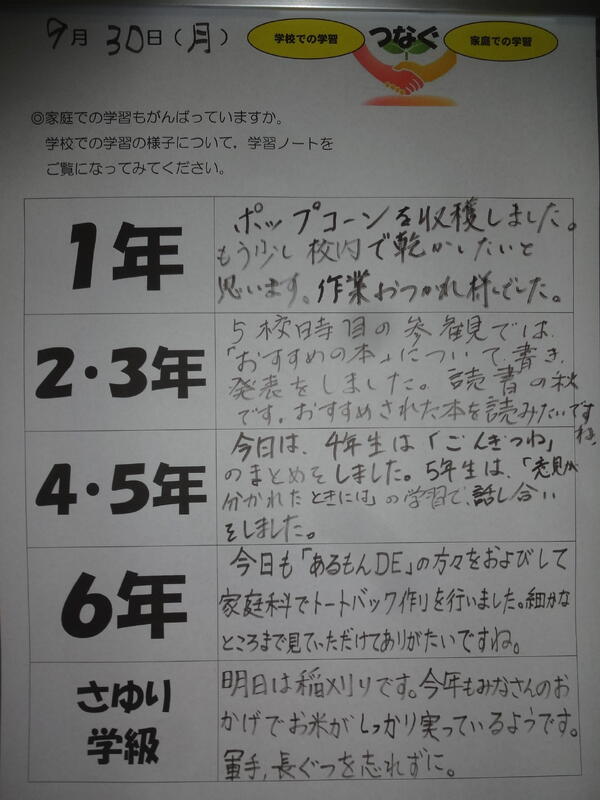 9月30日(月)
学校での学習 つなぐ 家庭での学習
◎家庭での学習もがんばっていますか。
学校での学習の様子について,学習ノートを
ご覧になってみてください。
1年
ポップコーンを収穫しました。
もう少し校内で乾かしたいと
思います。作業おつかれ様でした。
2・3年
5校時目の参観では、
「おすすめの本」について書き、
発表をしました。読書の秋
です。おすすめされた本を読みたいです
ね。
4・5年
今日は、4年生は「ごんぎつね」
のまとめをしました。5年生は、「意見が
分かれたときには」の学習で、話し合い
をしました。
6年
今日も「あるもんDE」の方々をおよびして
家庭科でトートバック作りを行いました。細かな
ところまで見ていただけてありがたいですね。
さゆり
学級
明日は稲刈りです。今年もみなさんのお
かげでお米がしっかり実っているようです。
軍手,長ぐつを忘れずに。